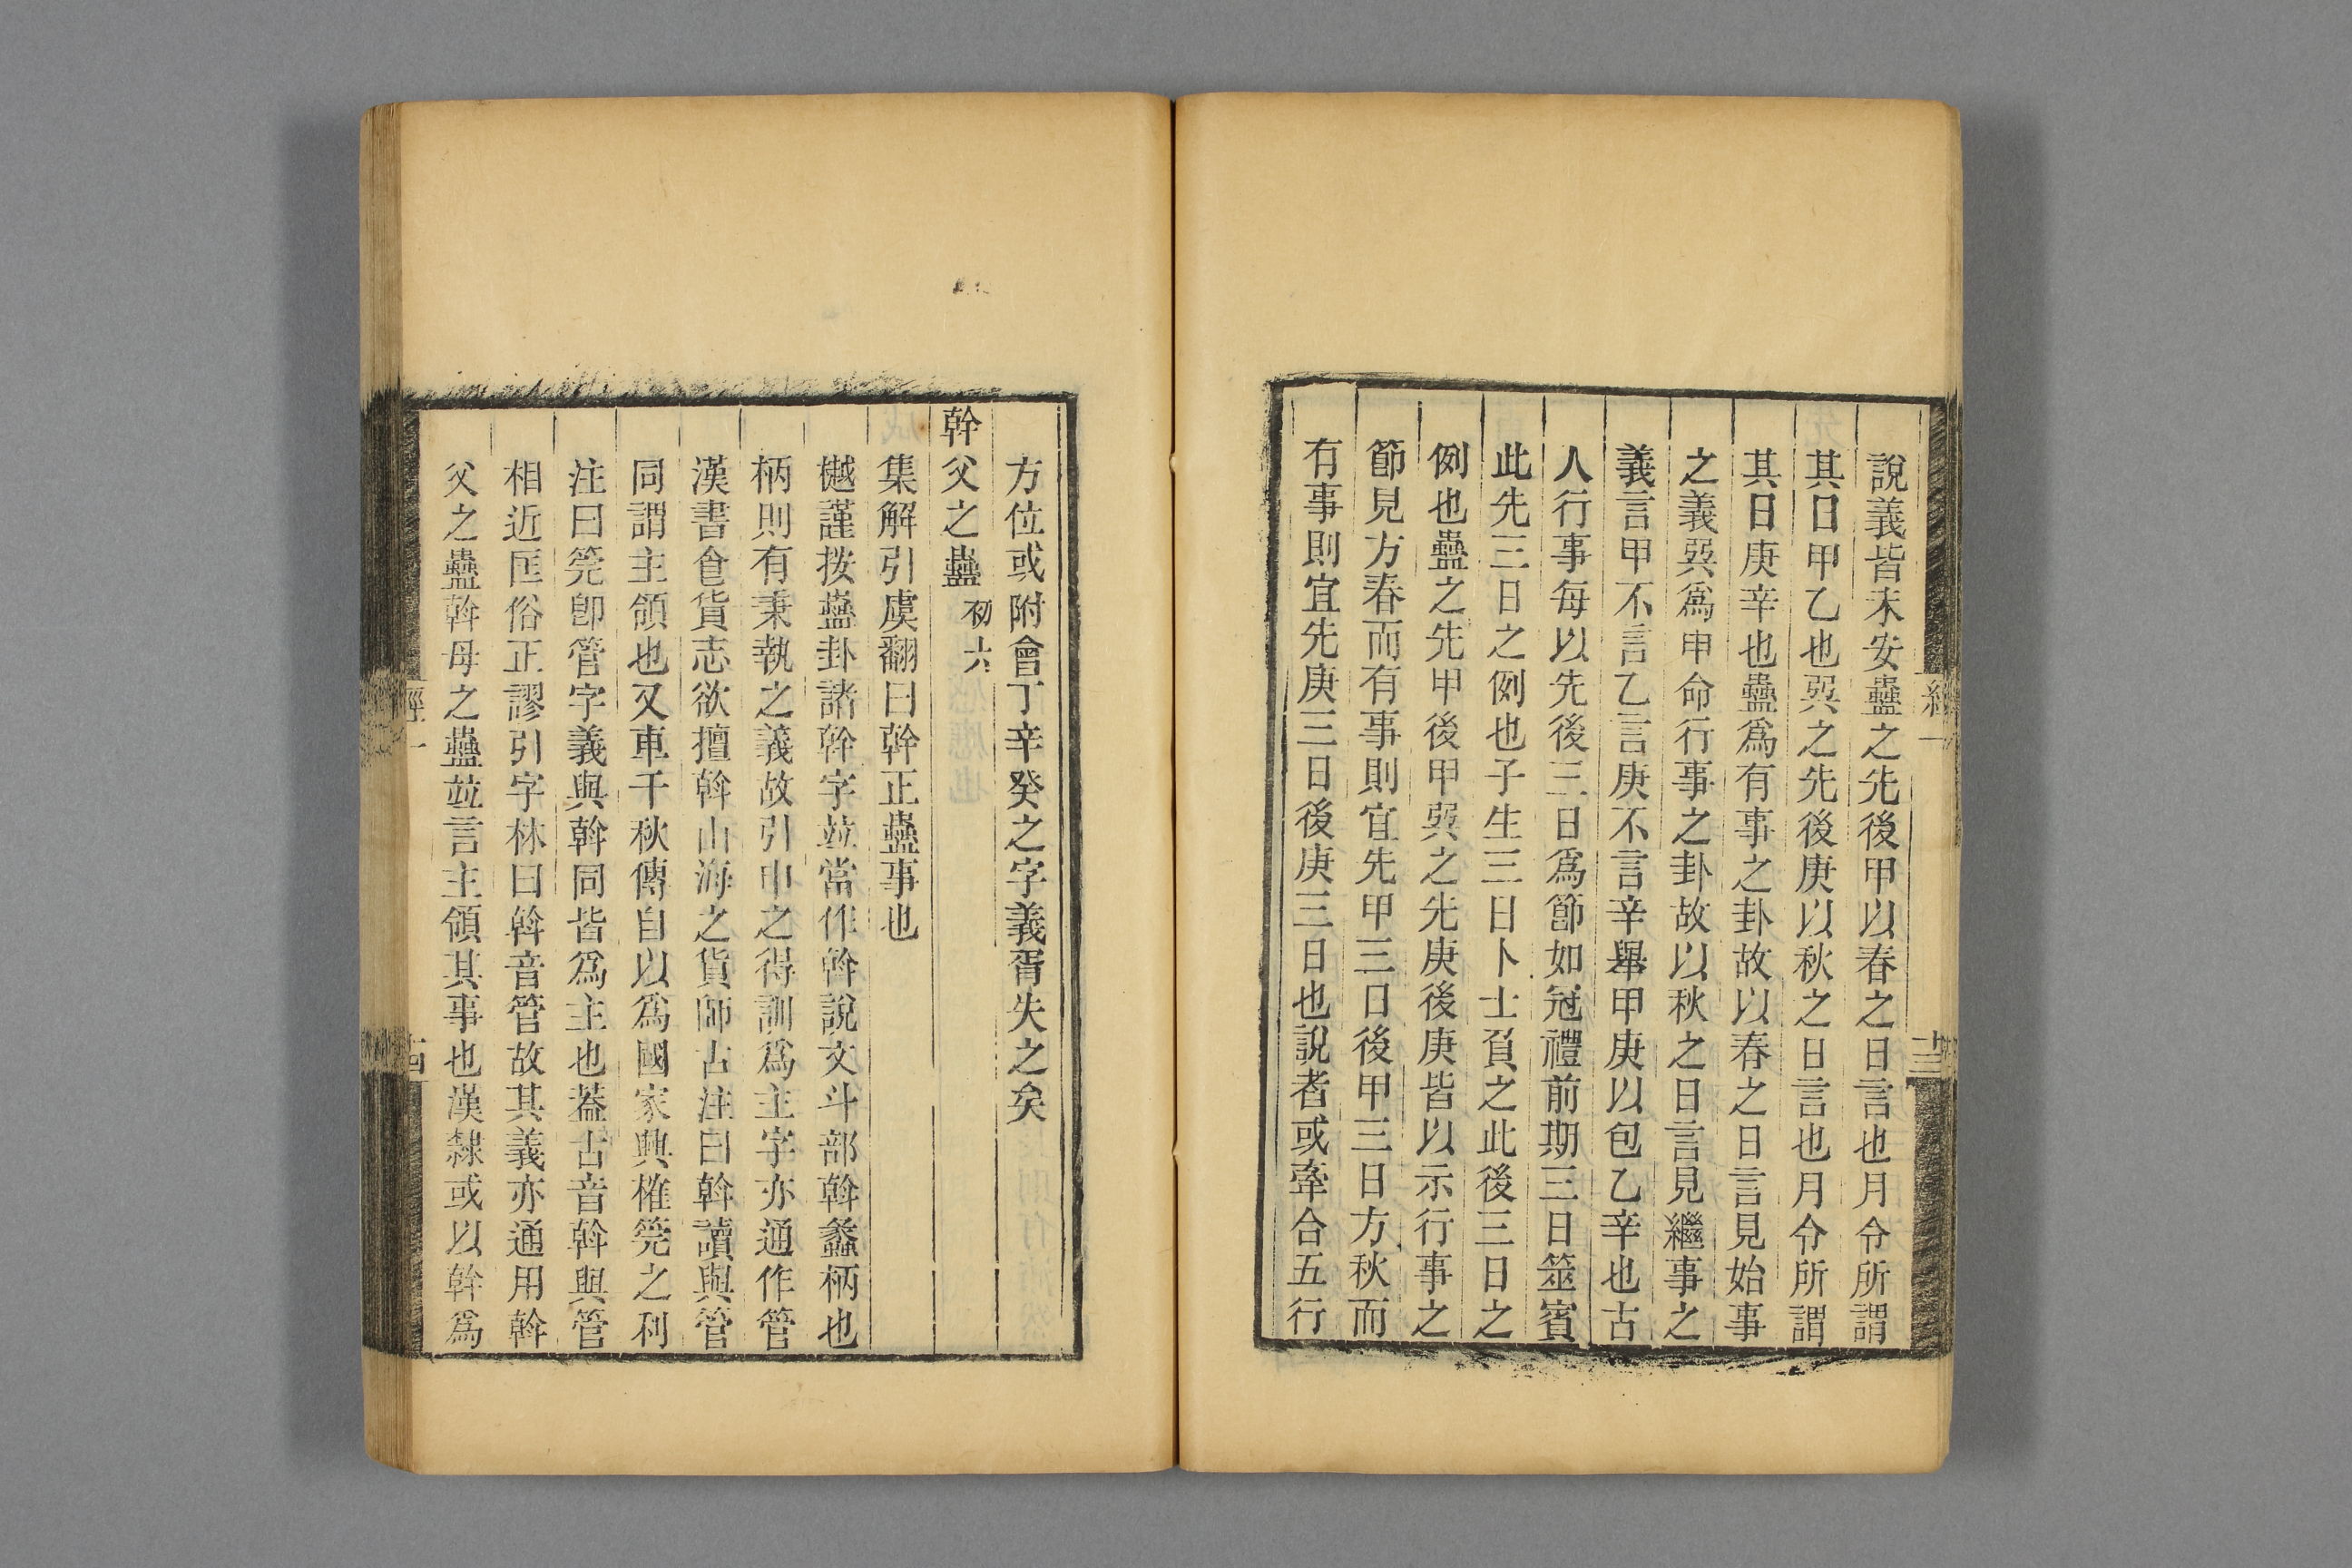 說義皆未安蠱之先後甲以春之日言也月令所謂
其日甲乙也巽之先後庚以秋之日言也月令所謂
其日庚辛也蠱爲有事之卦故以春之日言見始事
之義巽爲申命行事之卦故以秋之日言見繼事之
義言甲不言乙言庚不言辛舉甲庚以包乙辛也古
人行事每以先後三日爲節如冠禮前期三日筮賓
此先三日之例也子生三日卜士負之此後三日之
例也蠱之先甲後甲巽之先庚後庚皆以示行事之
節見方春而有事則宜先甲三日後甲三日方秋而
有事則宜先庚三日後庚三日也說者或牽合五行
方位或附會丁辛癸之字義胥失之矣
幹父之蠱初六
集解引虞翻曰幹正蠱事也
樾謹按蠱卦諸幹字竝當作斡說文斗部斡蠡柄也
柄則有秉執之義故引申之得訓爲主字亦通作管
漢書食貨志欲擅斡山海之貨師古注曰斡讀與管
同謂主領也又車千秋傳自以爲國家興榷筦之利
注曰筦卽管字義與斡同皆爲主也蓋古音斡與管
相近匡俗正謬引字林曰斡音管故其義亦通用斡
父之蠱斡母之蠱竝言主領其事也漢隸或以幹爲
經一
十三
經一
十四